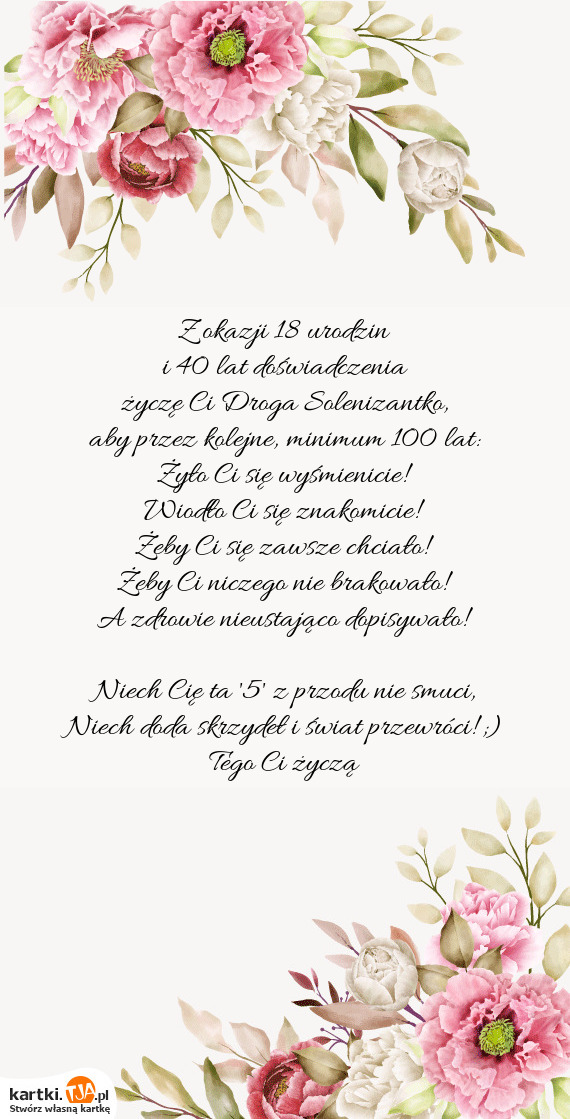 Z okazji 18 urodzin
i 40 lat doświadczenia
życzę Ci Droga Solenizantko,
aby przez kolejne, minimum 100 lat:
Żyło Ci się wyśmienicie!
Wiodło Ci się znakomicie!
Żeby Ci się zawsze chciało!
Żeby Ci niczego nie brakowało!
A zdrowie nieustająco dopisywało!
Niech Cię ta '5' z przodu nie smuci,
Niech doda skrzydeł i świat przewróci! ;)
Tego Ci życzą
kartki.TJA.pl
Stwórz własną kartkę